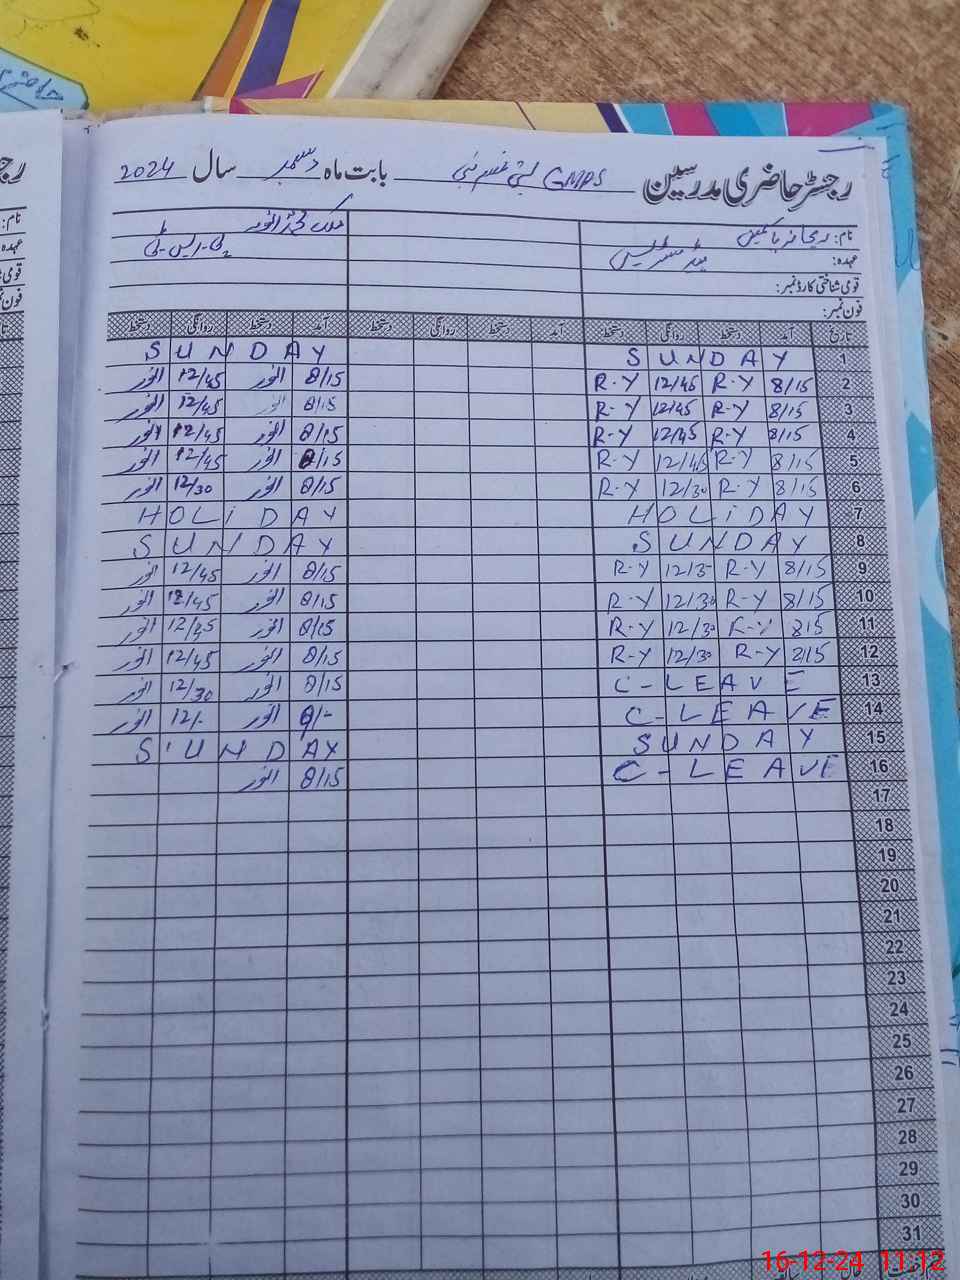 رجسٹر حاضری مدرسین GMPS بستی بابت ماہ دسمبر سال 2024
نام: ریحانہ یاسمین ملک محمد انور
عہدہ: ہیڈ مسٹریس
قومی شناختی کارڈ نمبر:
فون نمبر:
تاریخ آمد دستخط روانگی دستخط آمد دستخط روانگی دستخط آمد دستخط روانگی دستخط
1 SUNDAY SUNDAY
2 8/15 R-Y 12/45 R-Y 8/15 انور 12/45 انور
3 8/15 R-Y 12/45 R-Y 8/15 انور 12/45 انور
4 8/15 R-Y 12/45 R-Y 8/15 انور 12/45 انور
5 8/15 R-Y 12/45 R-Y 8/15 انور 12/45 انور
6 8/15 R-Y 12/30 R-Y 8/15 انور 12/30 انور
7 HOLiDAY HOLiDAY
8 SUNDAY SUNDAY
9 8/15 R-Y 12/3- R-Y 8/15 انور 12/45 انور
10 8/15 R-Y 12/30 R-Y 8/15 انور 12/45 انور
11 815 R-Y 12/30 R-Y 8/15 انور 12/45 انور
12 8/15 R-Y 12/30 R-Y 8/15 انور 12/45 انور
13 C-LEAVE 8/15 انور 12/30 انور
14 C-LEAVE 8/- انور 12/- انور
15 SUNDAY SUNDAY
16 C-LEAVE 8/15 انور
17
18
19
20
21
22
23
24
25
26
27
28
29
30
31
16-12-24 11:12